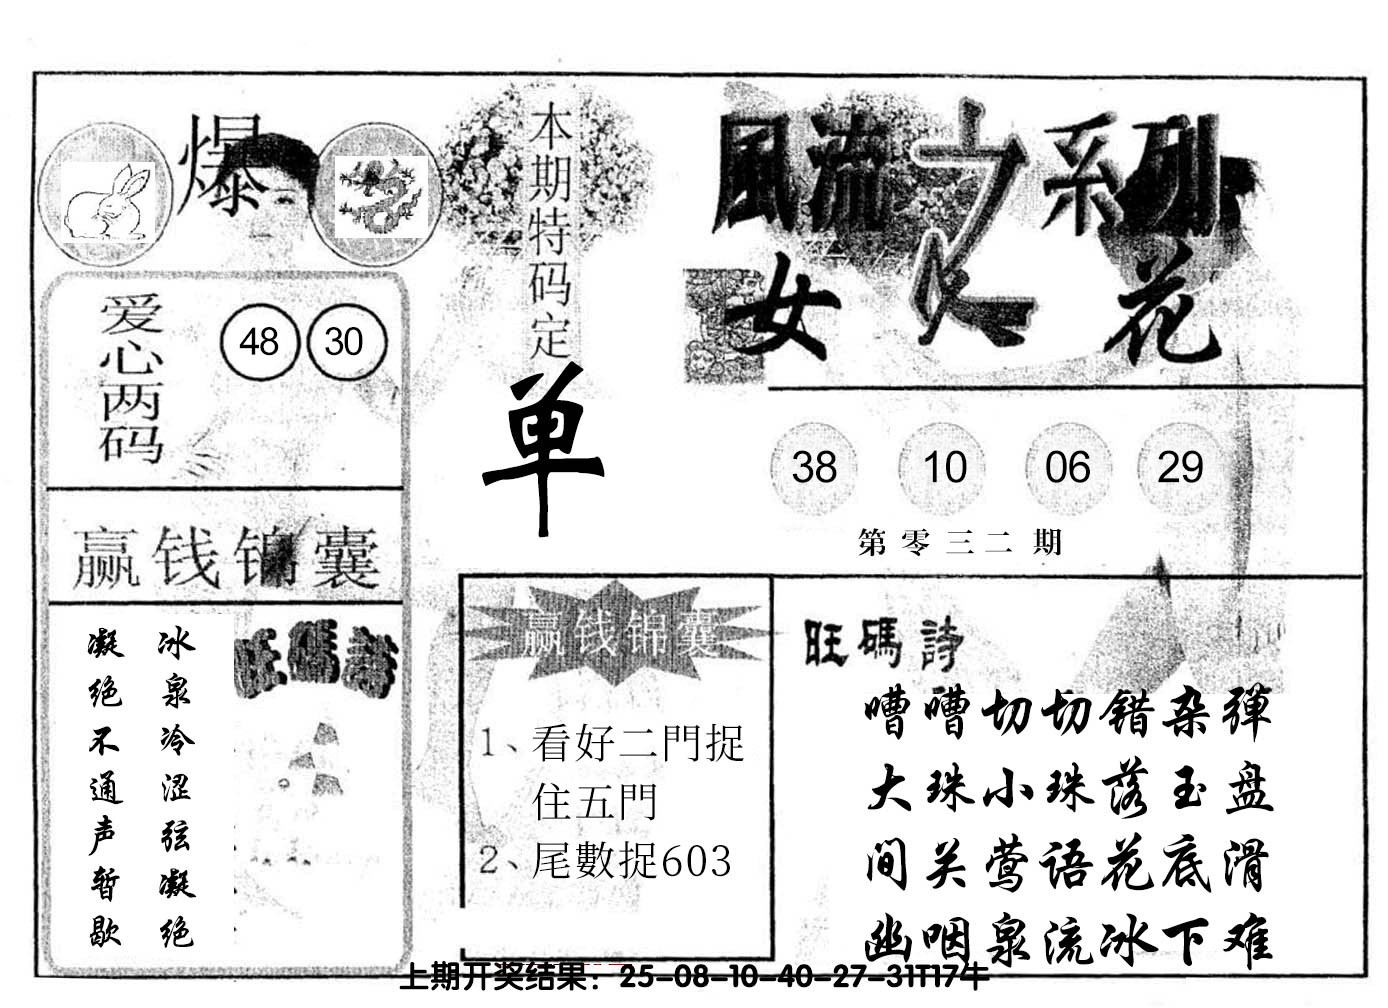 爆
本期特码定
单
風流之系列
女人花
爱心两码
48 30
38 10 06 29
第零三二期
赢钱锦囊
旺碼詩
冰泉冷涩弦凝绝
凝绝不通声暂歇
赢钱锦囊
1、看好二門捉
住五門
2、尾數捉603
旺碼詩
嘈嘈切切错杂弹
大珠小珠落玉盘
间关莺语花底滑
幽咽泉流冰下难
上期开奖结果：25-08-10-40-27-31T17牛